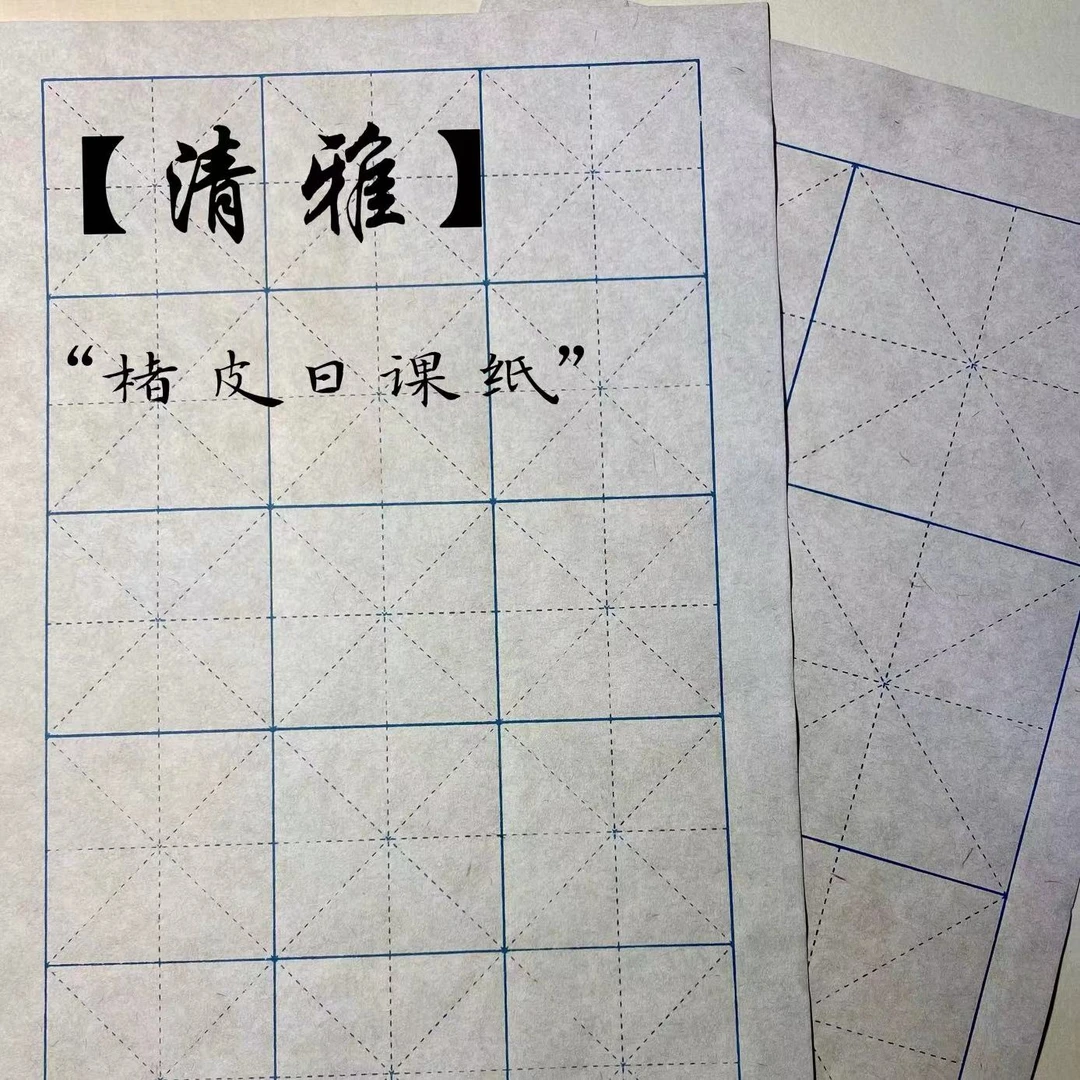 【清雅】
“楮皮日课纸”